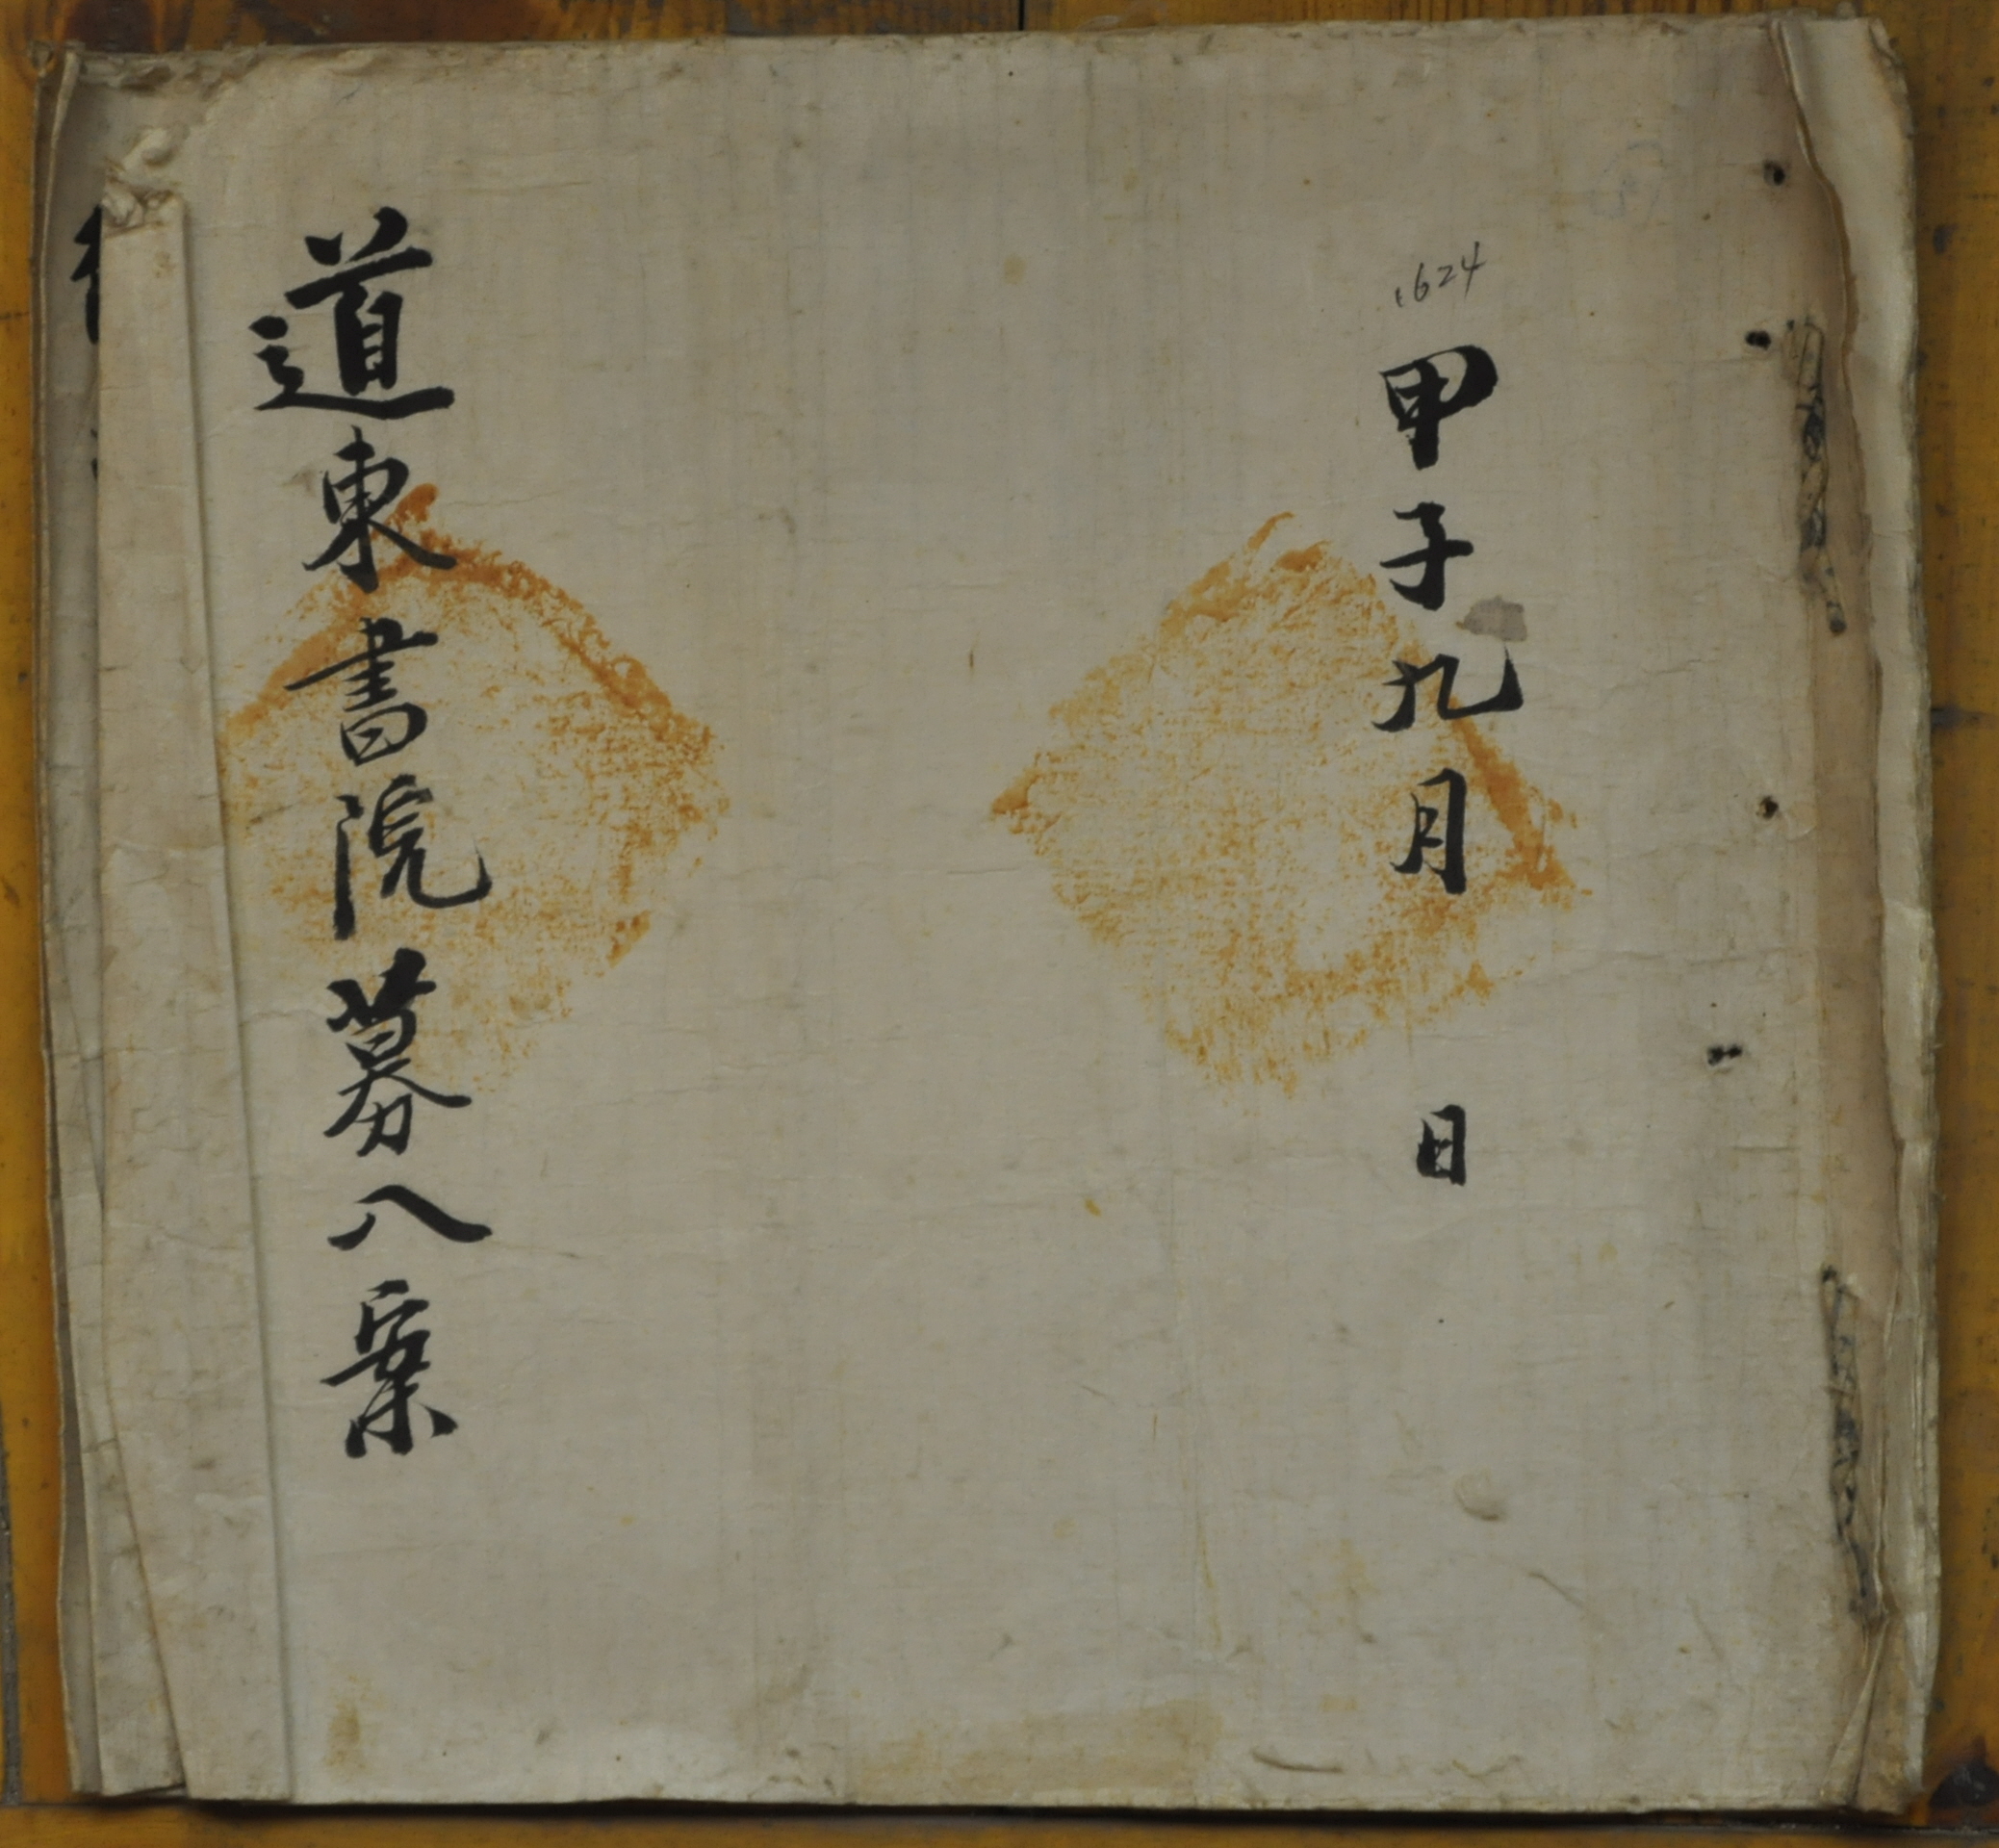 1624
甲子九月 日
道東書院募入案